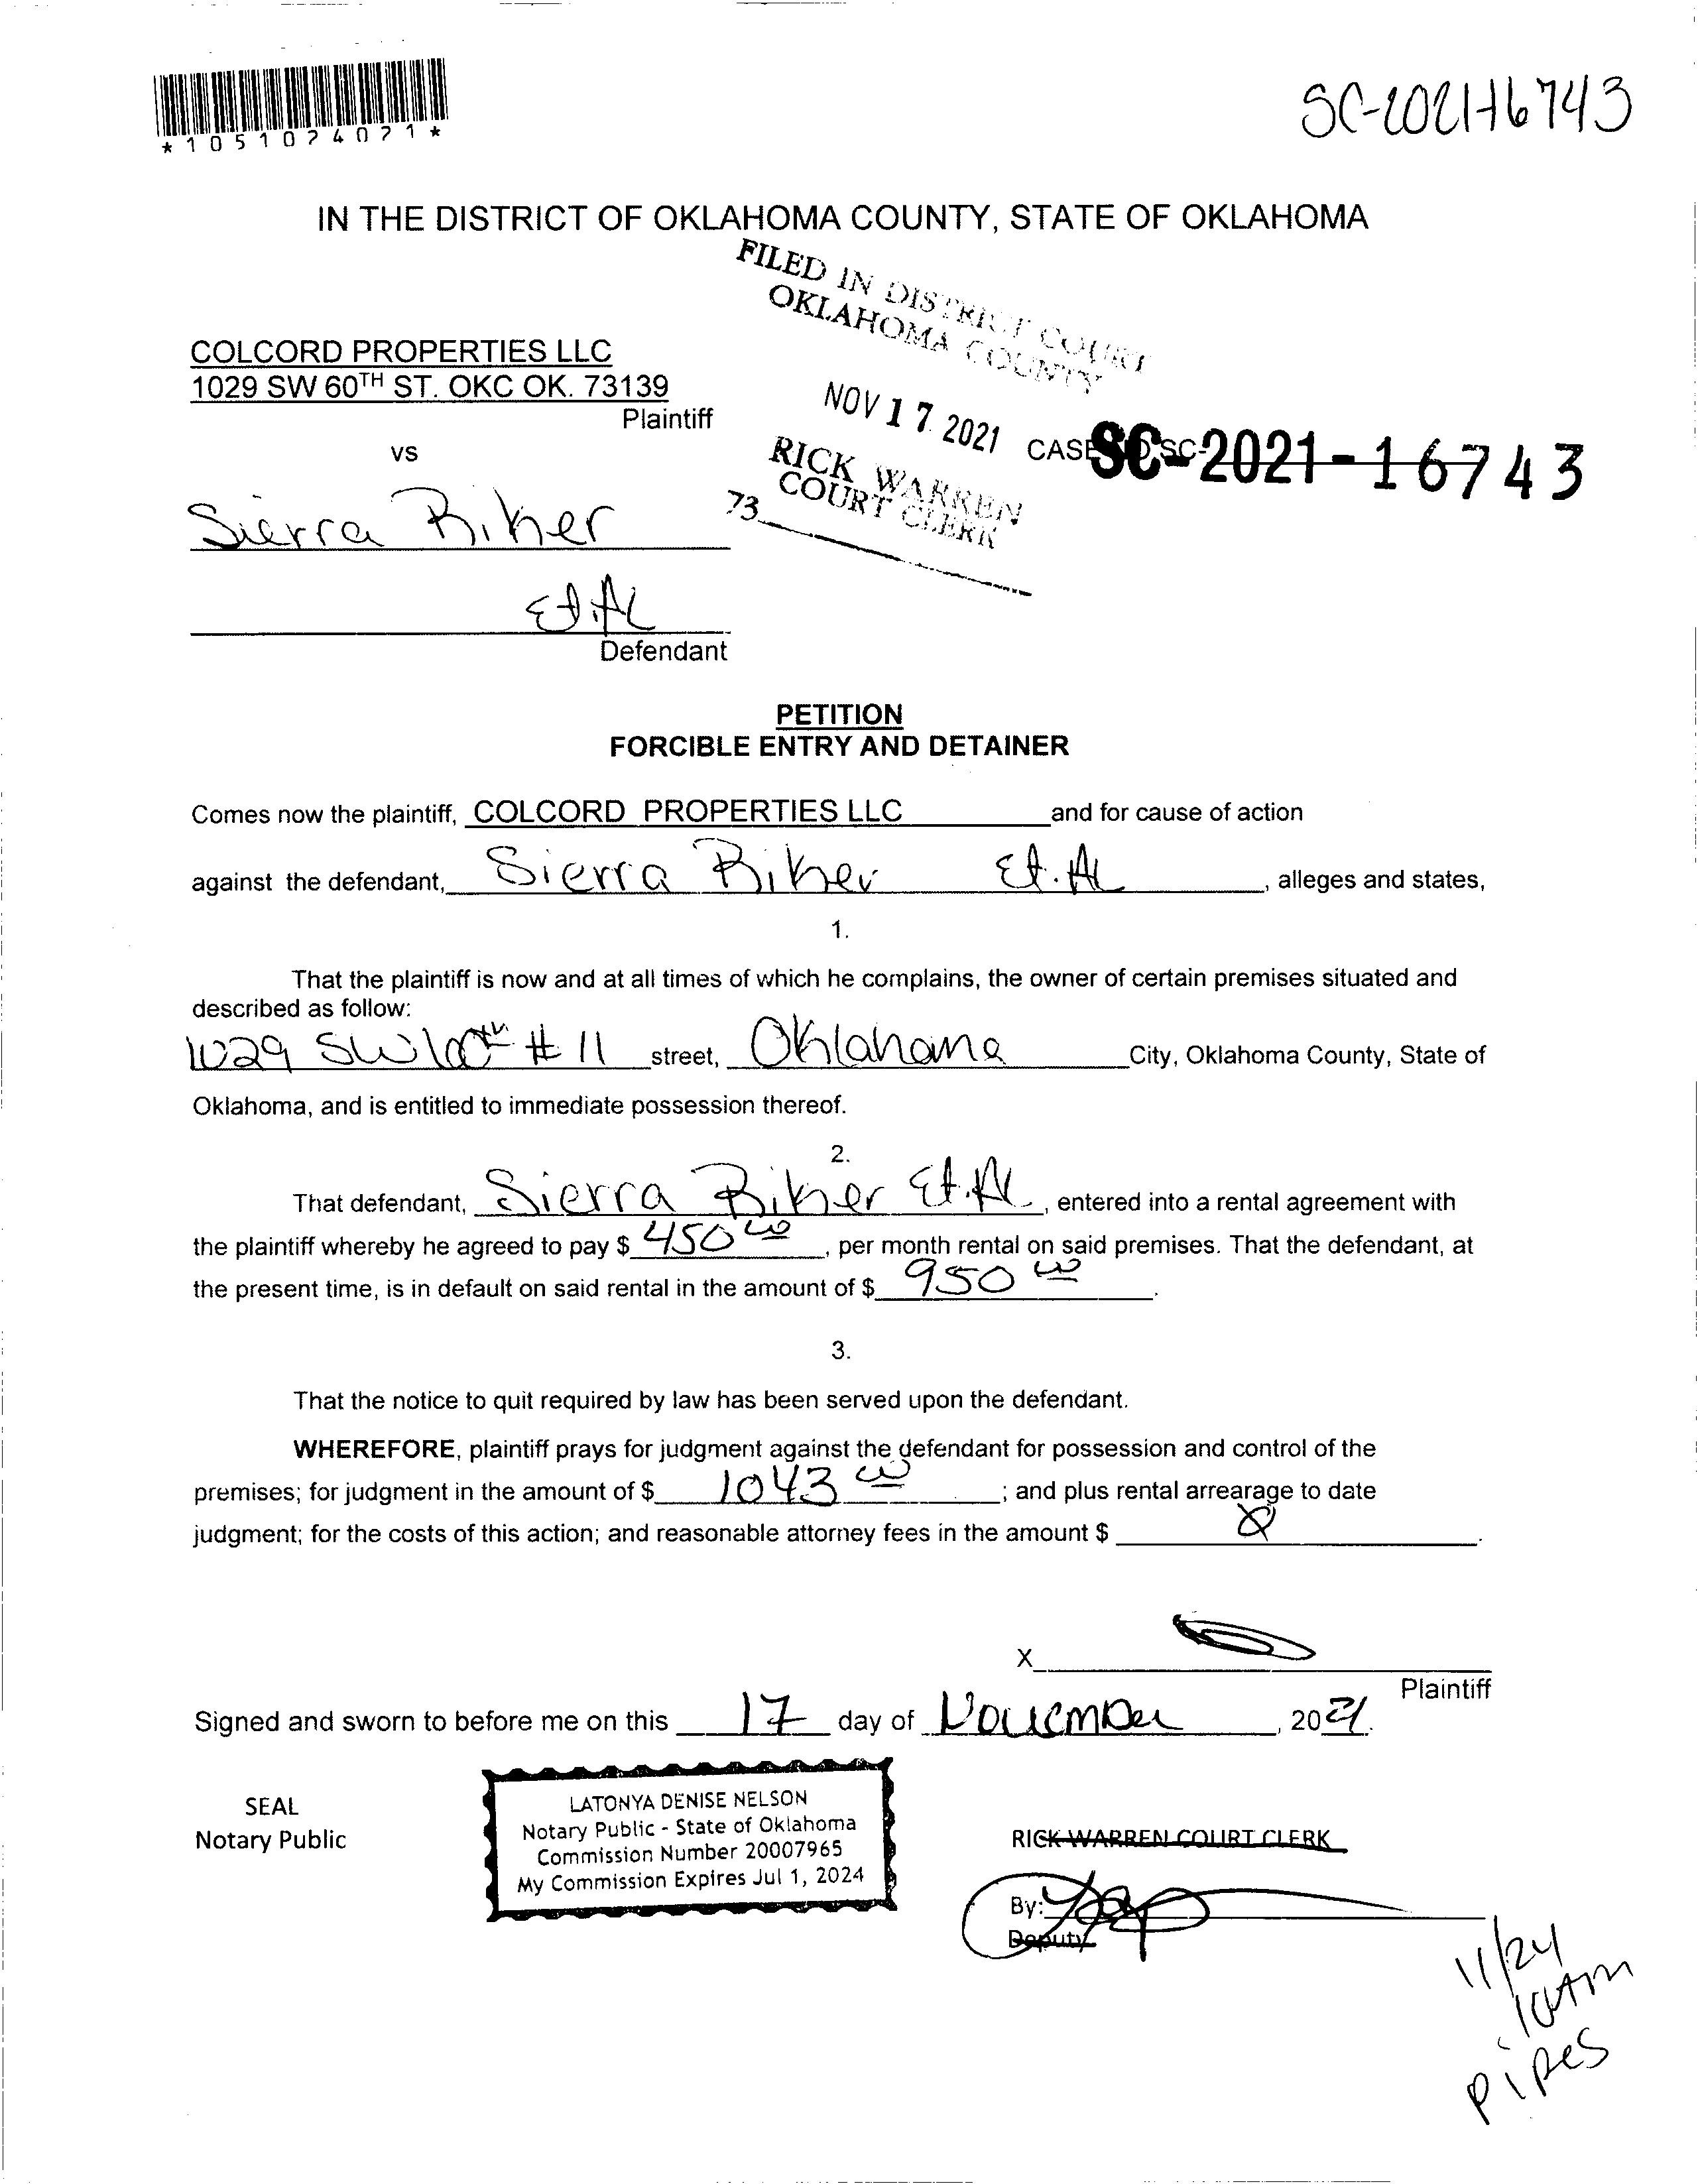 *1051074071*
SC-2021-16743
IN THE DISTRICT OF OKLAHOMA COUNTY, STATE OF OKLAHOMA
FILED IN DISTRICT COURT
OKLAHOMA COUNTY
COLCORD PROPERTIES LLC
1029 SW 60TH ST. OKC OK. 73139
Plaintiff
NOV 17 2021
CASE NO SC-
SC-2021-16743
vs
RICK WARREN
COURT CLERK
73
Sierra Riker
Et.Al
Defendant
PETITION
FORCIBLE ENTRY AND DETAINER
Comes now the plaintiff, COLCORD PROPERTIES LLC and for cause of action
against the defendant, Sierra Riker Et.Al, alleges and states,
1.
That the plaintiff is now and at all times of which he complains, the owner of certain premises situated and
described as follow:
1029 SW 60th # 11 street, Oklahoma City, Oklahoma County, State of
Oklahoma, and is entitled to immediate possession thereof.
2.
That defendant, Sierra Riker Et.Al, entered into a rental agreement with
the plaintiff whereby he agreed to pay $ 450 00, per month rental on said premises. That the defendant, at
the present time, is in default on said rental in the amount of $ 950 00.
3.
That the notice to quit required by law has been served upon the defendant.
WHEREFORE, plaintiff prays for judgment against the defendant for possession and control of the
premises; for judgment in the amount of $ 1043 00; and plus rental arrearage to date
judgment; for the costs of this action; and reasonable attorney fees in the amount $
X
Plaintiff
Signed and sworn to before me on this 17 day of November, 2021.
SEAL
Notary Public
LATONYA DENISE NELSON
Notary Public - State of Oklahoma
Commission Number 20007965
My Commission Expires Jul 1, 2024
RICK WARREN COURT CLERK
By:
Deputy
11/24
10AM
Pipes